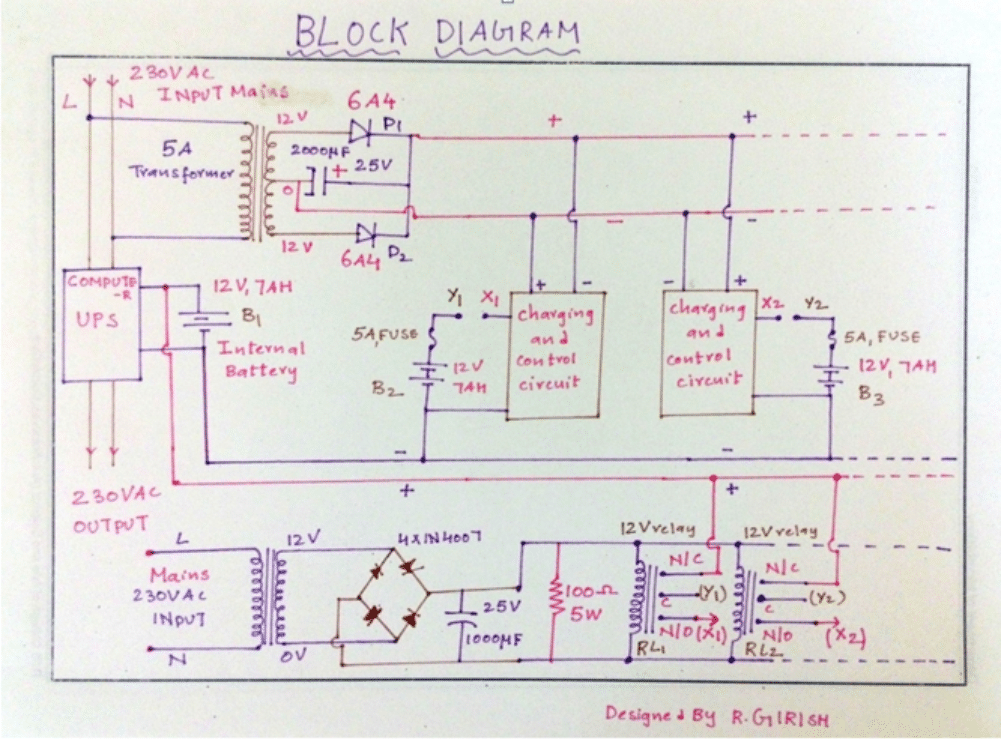 BLOCK DIAGRAM
230V AC
INPUT Mains
L
N
12V
6A4
D1
5A
Transformer
2000µF
+
25V
0
12V
6A4
D2
+
+
−
−
COMPUTE
-R
UPS
12V, 7AH
B1
Internal
Battery
Y1
X1
5A,FUSE
12V
7AH
B2
+
−
charging
and
control
circuit
−
+
charging
and
control
circuit
X2
Y2
5A, FUSE
12V, 7AH
B3
−
−
+
+
230VAC
OUTPUT
L
Mains
230VAC
INPUT
N
12V
0V
4X1N4007
25V
1000µF
100Ω
5W
12V relay
N/C
C
(Y1)
N/O (X1)
RL1
12V relay
N/C
C
(Y2)
N/O
(X2)
RL2
Designed By R.GIRISH